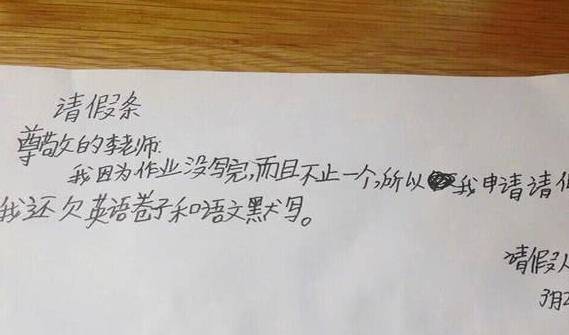 请假条
尊敬的李老师:
我因为作业没写完,而且不止一个,所以我申请请
我还欠英语卷子和语文默写。
请假人
3月2